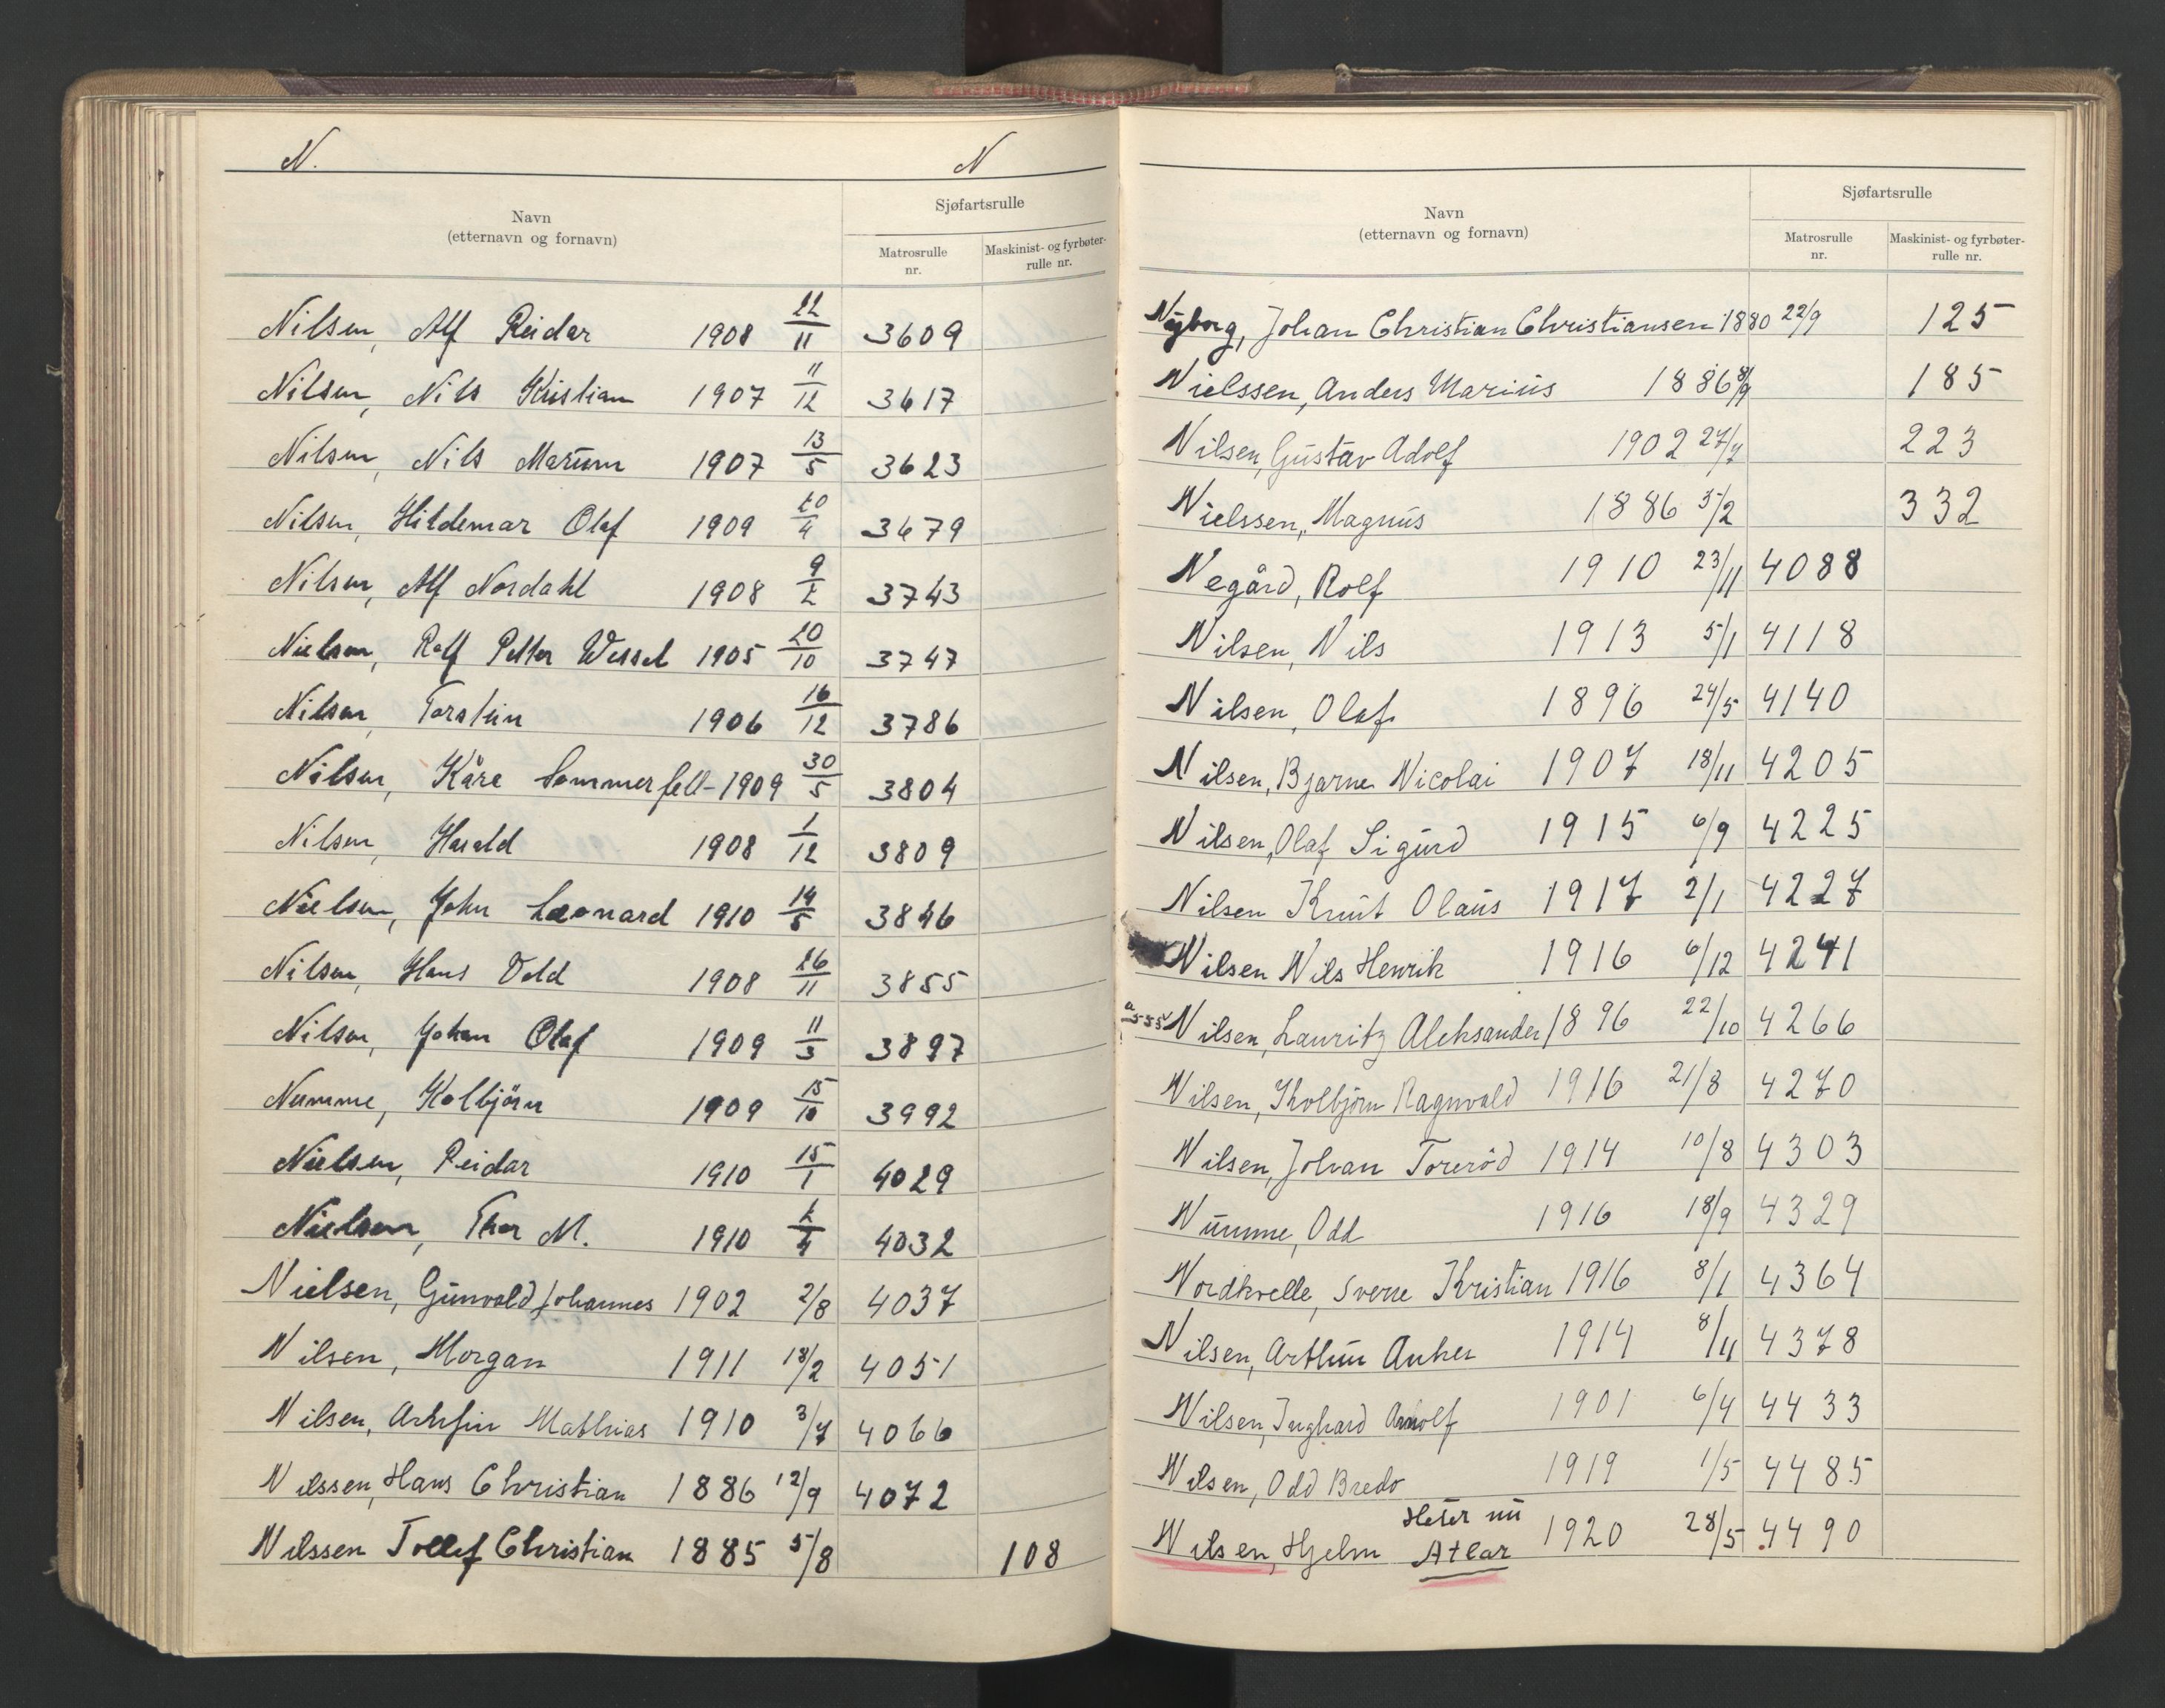 N. N
Navn
(etternavn og fornavn)
Sjøfartsrulle
Matrosrulle
nr.
Maskinist- og fyrbøter-
rulle nr.
Nilsen, Alf Reidar 1908 22/11 3609
Nilsen, Nils Kristian 1907 11/12 3617
Nilsen, Nils Marum 1907 13/5 3623
Nilsen, Hildemar Olaf 1909 20/4 3679
Nilsen, Alf Nordahl 1908 9/2 3743
Nielsen, Rolf Petter Wessel 1905 20/10 3747
Nilsen, Torstein 1906 16/12 3786
Nilsen, Kåre Sommerfelt- 1909 30/5 3804
Nilsen, Harald 1908 1/12 3809
Nielsen, John Leonard 1910 14/5 3846
Nilsen, Hans Vold 1908 26/11 3855
Nilsen, Johan Olaf 1909 11/3 3897
Numme, Kolbjörn 1909 15/10 3992
Nielsen, Reidar 1910 15/1 4029
Nielsen, Thor M. 1910 2/4 4032
Nielsen, Gunvald Johannes 1902 2/8 4037
Nilsen, Morgan 1911 18/2 4051
Nilsen, Arnfin Mathias 1910 3/7 4066
Nilssen, Hans Christian 1886 12/9 4072
Nilssen Tollef Christian 1885 5/8 108
Navn
(etternavn og fornavn)
Sjøfartsrulle
Matrosrulle
nr.
Maskinist- og fyrbøter-
rulle nr.
Nyborg, Johan Christian Christiansen 1880 22/9 125
Nielssen, Anders Marius 1886 8/9 185
Nilsen, Gustav Adolf 1902 27/7 223
Nielssen, Magnus 1886 5/2 332
Negård, Rolf 1910 23/11 4088
Nilsen, Nils 1913 5/1 4118
Nilsen, Olaf 1896 24/5 4140
Nilsen, Bjarne Nicolai 1907 18/11 4205
Nilsen, Olaf Sigurd 1915 6/9 4225
Nilsen Knut Olaus 1917 2/1 4227
Nilsen Nils Henrik 1916 6/12 4241
Nilsen, Lauritz Aleksander 1896 22/10 4266
Nilsen, Kolbjörn Ragnvald 1916 21/8 4270
Nilsen, Johan Toreröd 1914 10/8 4303
Numme, Odd 1916 18/9 4329
Nordkvelle, Sverre Kristian 1916 8/1 4364
Nilsen, Arthur Anker 1914 8/11 4378
Nilsen, Inghard Arnolf 1901 6/4 4433
Nilsen, Odd Bredo 1919 1/5 4485
Heter nu
Nilsen, Hjelm Atlar 1920 28/5 4490